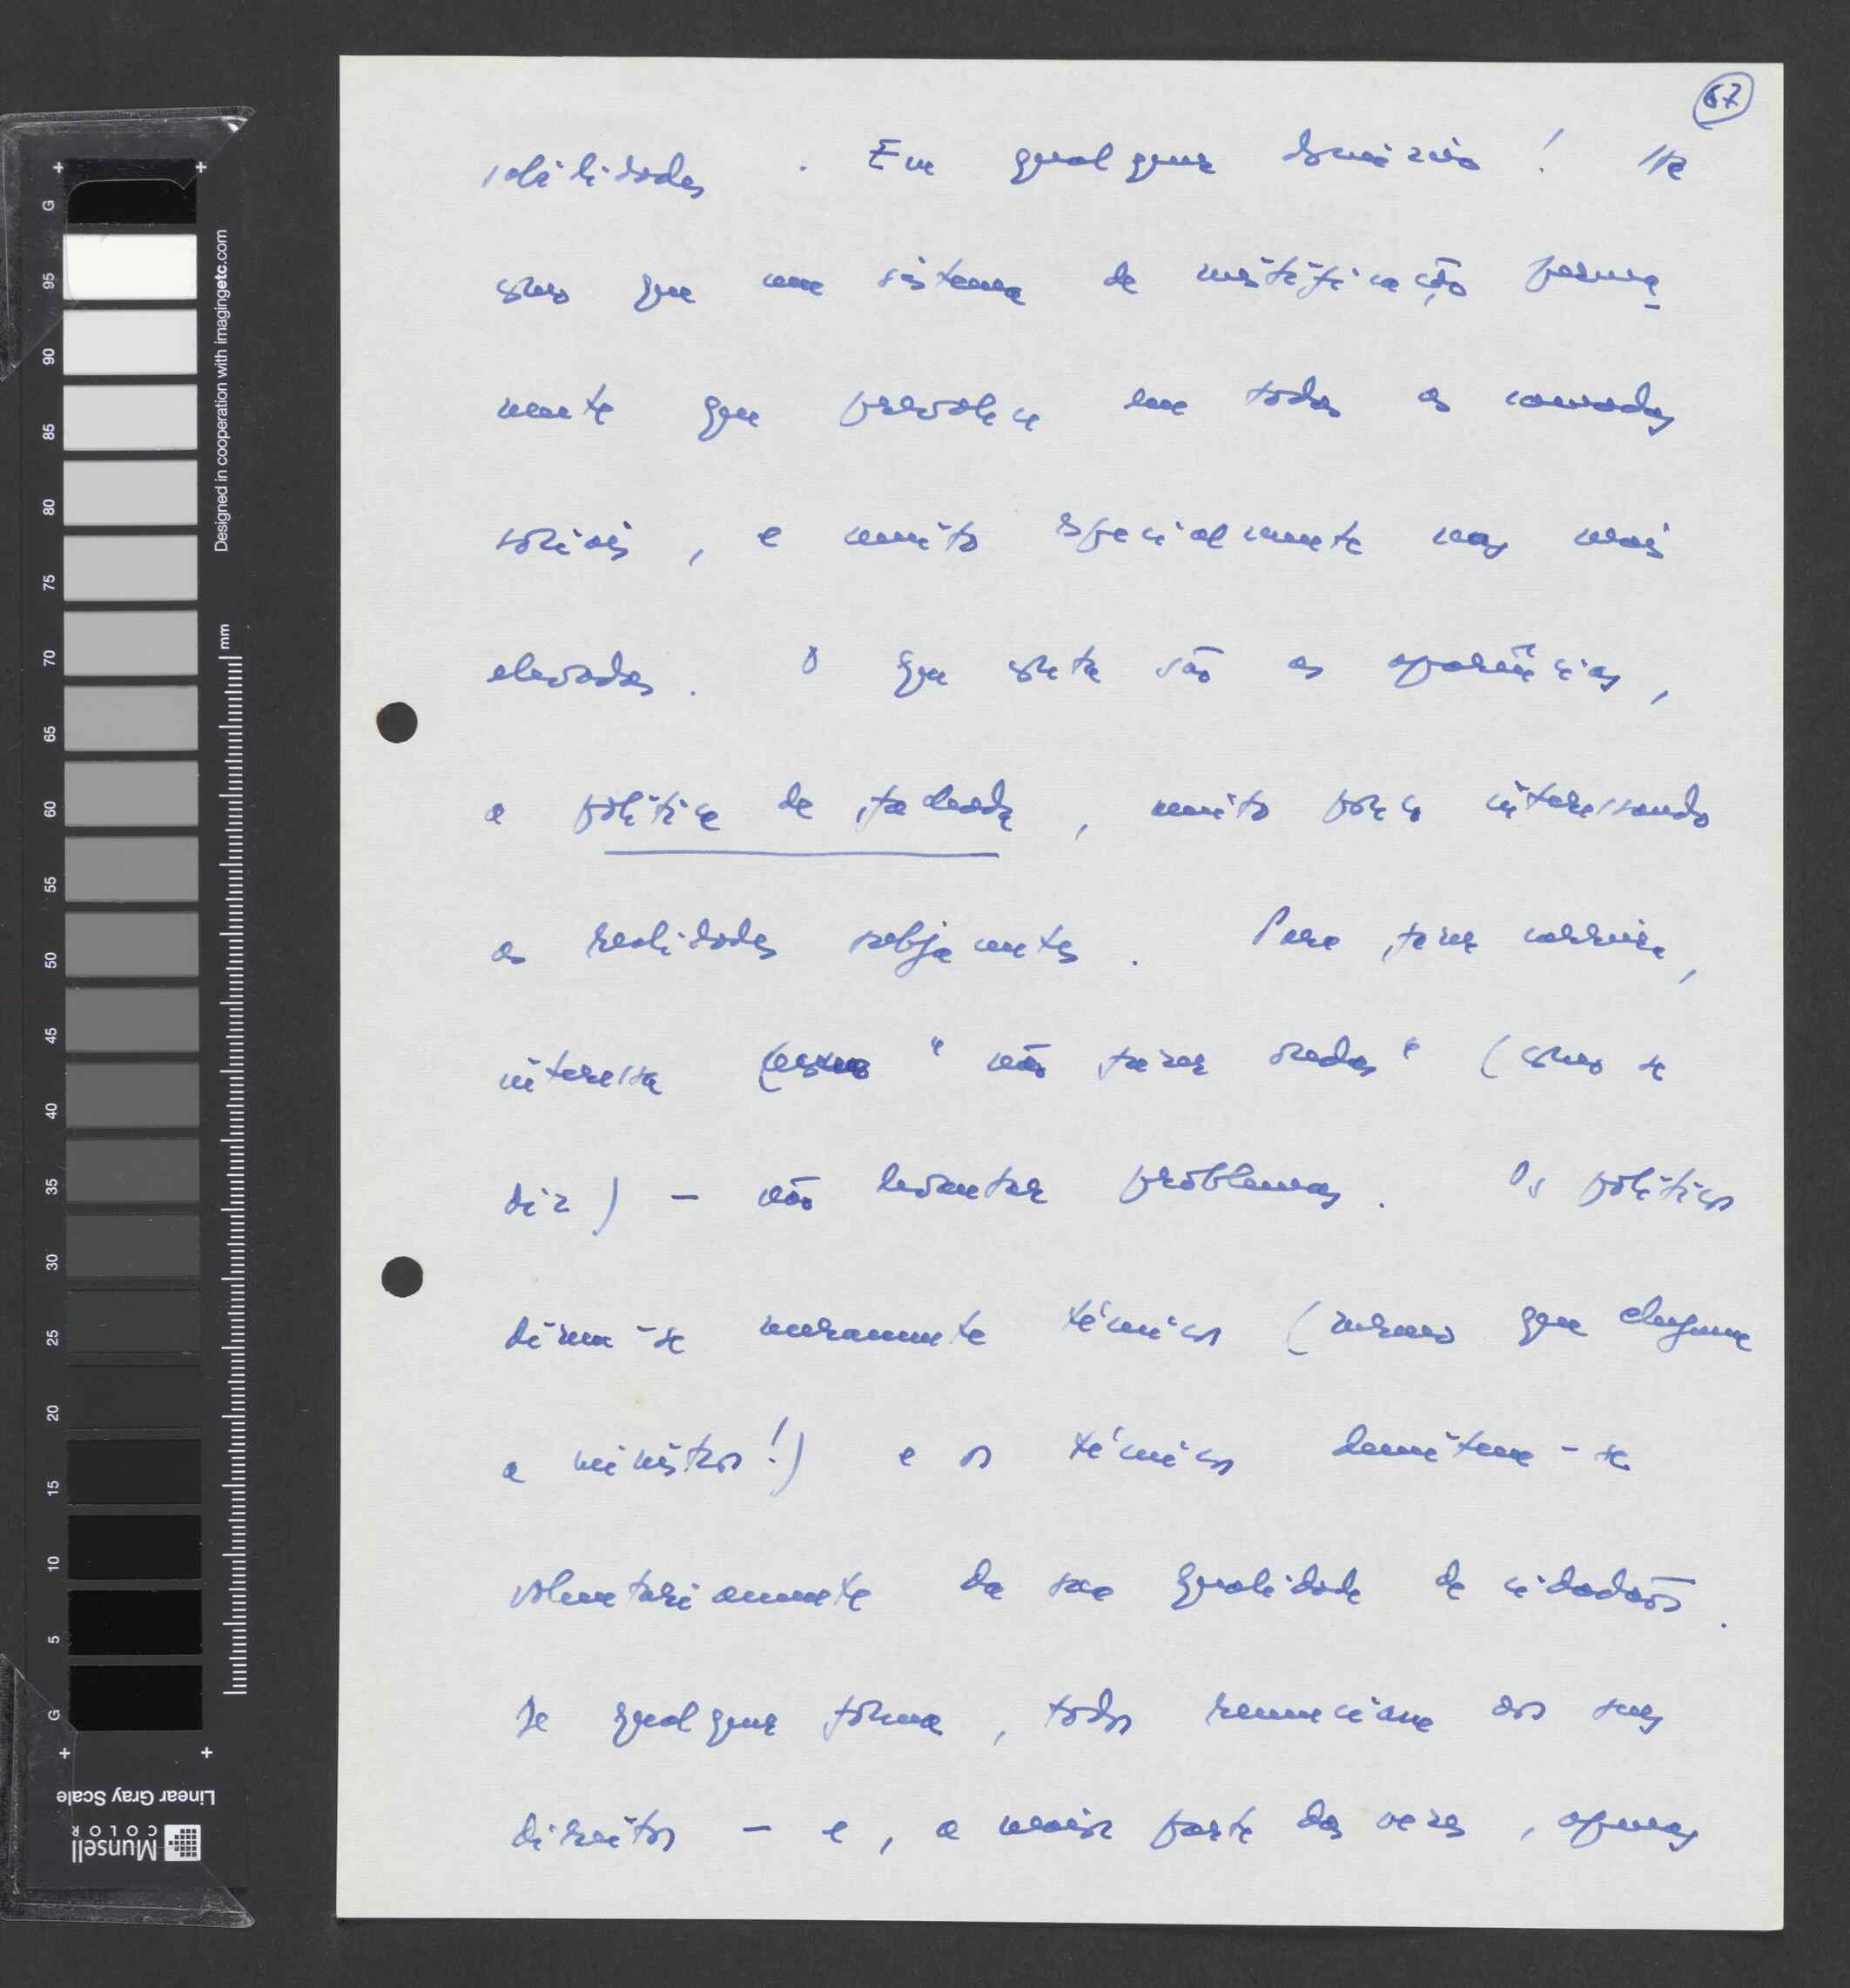 67
sabilidades. Em qualquer domínio! Há
como que um sistema de mistificação perma-
nente que prevalece em todas as camadas
sociais, e muito especialmente nas mais
elevadas. O que conta são as aparências,
a política de fachada, muito pouco interessando
as realidades subjacentes. Para fazer carreira,
interessa "não fazer ondas" (como se
diz) – não levantar problemas. Os políticos
dizem-se meramente técnicos (mesmo que cheguem
a ministros!) e os técnicos demitem-se
voluntariamente da sua qualidade de cidadãos.
De qualquer forma, todos renunciam aos seus
direitos – e, a maior parte das vezes, apenas
Designed in cooperation with imagingetc.com
mm
G 95 90 85 80 75 70 65 60 55 50 45 40 35 30 25 20 15 10 5 G
Linear Gray Scale
Munsell
COLOR